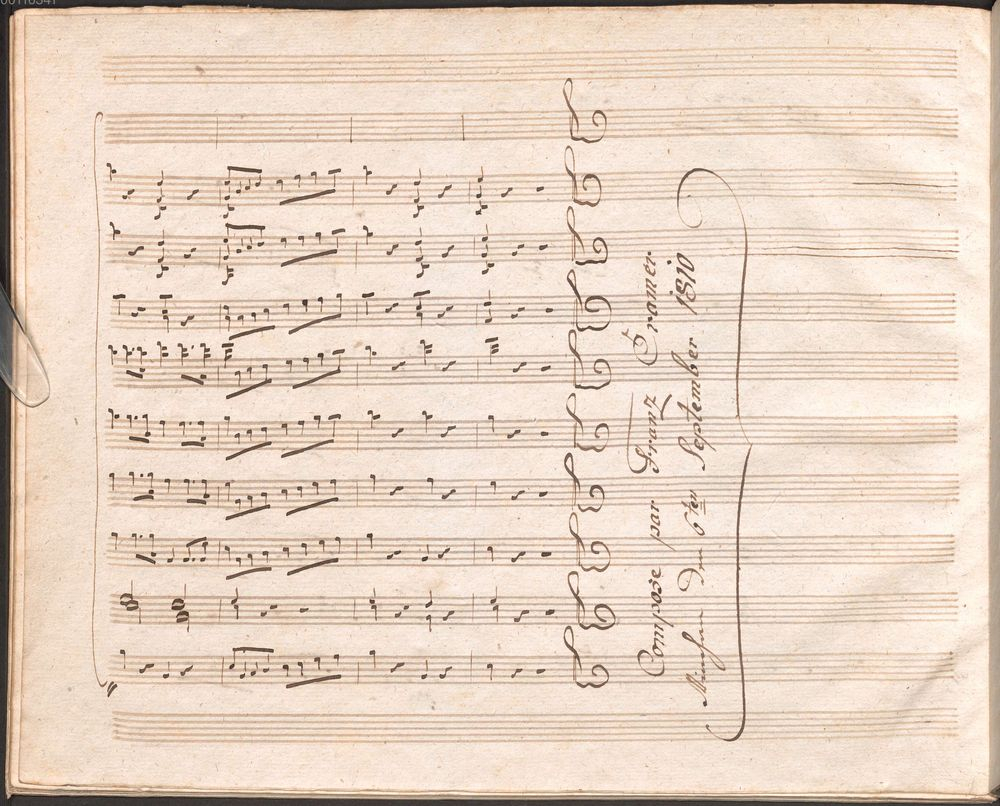 Compose par Franz Cramer
München den 6ten September 1810